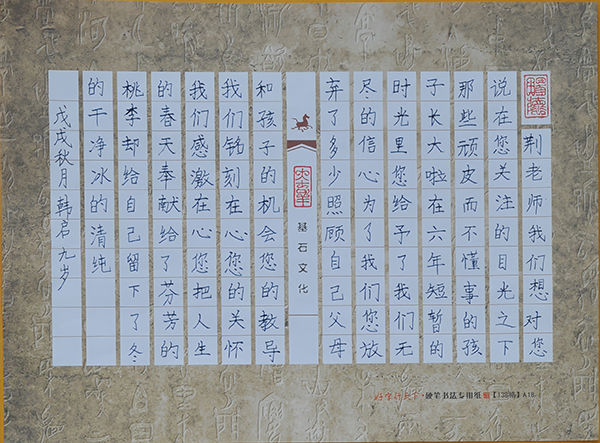 荆老师我们想对您
说在您关注的目光之下
那些顽皮而不懂事的孩
子长大啦在六年短暂的
时光里您给予了我们无
尽的信心为了我们您放
弃了多少照顾自己父母
基石文化
和孩子的机会您的教导
我们铭刻在心您的关怀
我们感激在心您把人生
的春天奉献给了芬芳的
桃李却给自己留下了冬
的干净冰的清纯
戊戌秋月韩启九岁
好字行天下·硬笔书法专用纸【138格】A18